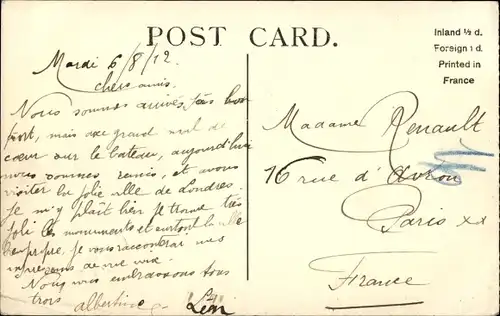 POST CARD.
Inland ½ d.
Foreign 1 d.
Printed in
France
Mardi 6/8/12
Chers amis.
Nous sommes arrivés à bon
port, mais avec grand mal de
cœur sur le bateau, aujourd'hui
nous sommes remis, et avons
visiter la jolie ville de Londres.
Je m'y plaît bien je trouve très
joli les monuments et surtout la ville
propre, je vous racontrai mes
impressions de vive voix.
Nous vous embrassons tous
trois albertine Léon
Madame Renault
76 rue d'Avron
Paris xx
France